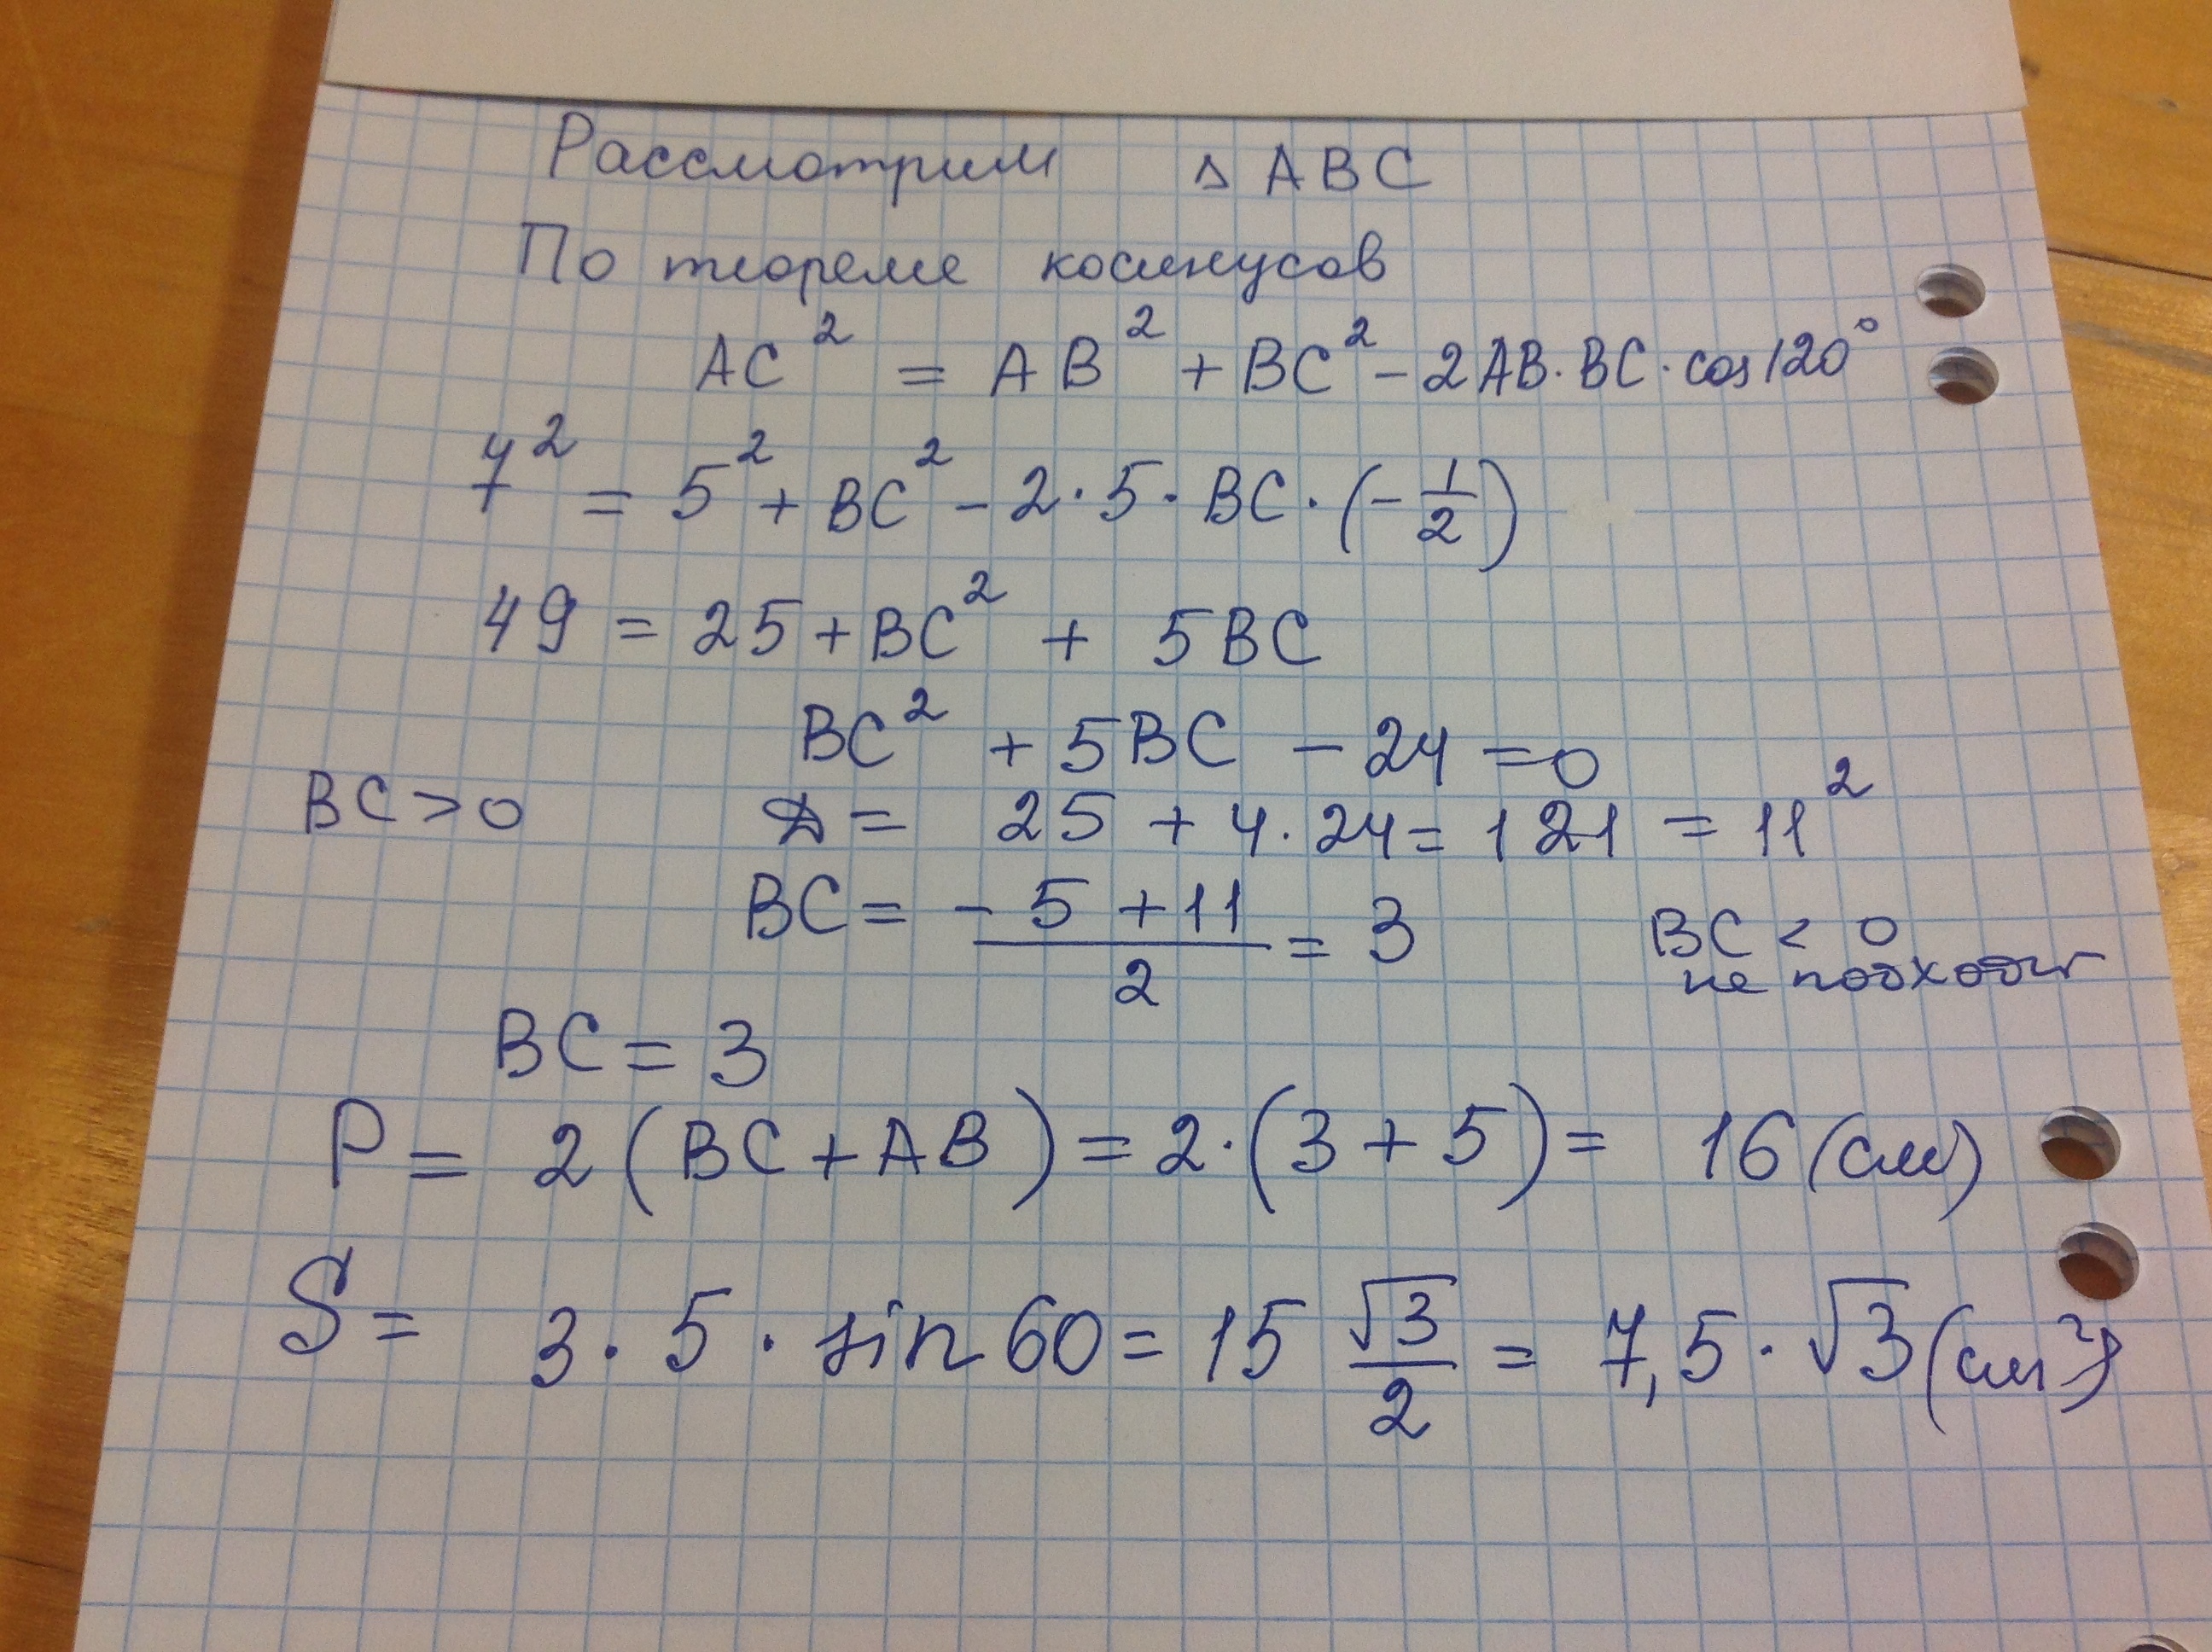 Рассмотрим △ABC
По теореме косинусов
AC² = AB² + BC² - 2AB·BC·cos120°
7² = 5² + BC² - 2·5·BC·(-1/2)
49 = 25 + BC² + 5BC
BC² + 5BC - 24 = 0
BC > 0 D = 25 + 4·24 = 121 = 11²
BC = (-5 + 11)/2 = 3 BC < 0
не подходит
BC = 3
P = 2(BC + AB) = 2·(3 + 5) = 16 (см)
S = 3·5·sin 60 = 15 √3/2 = 7,5·√3 (см²)